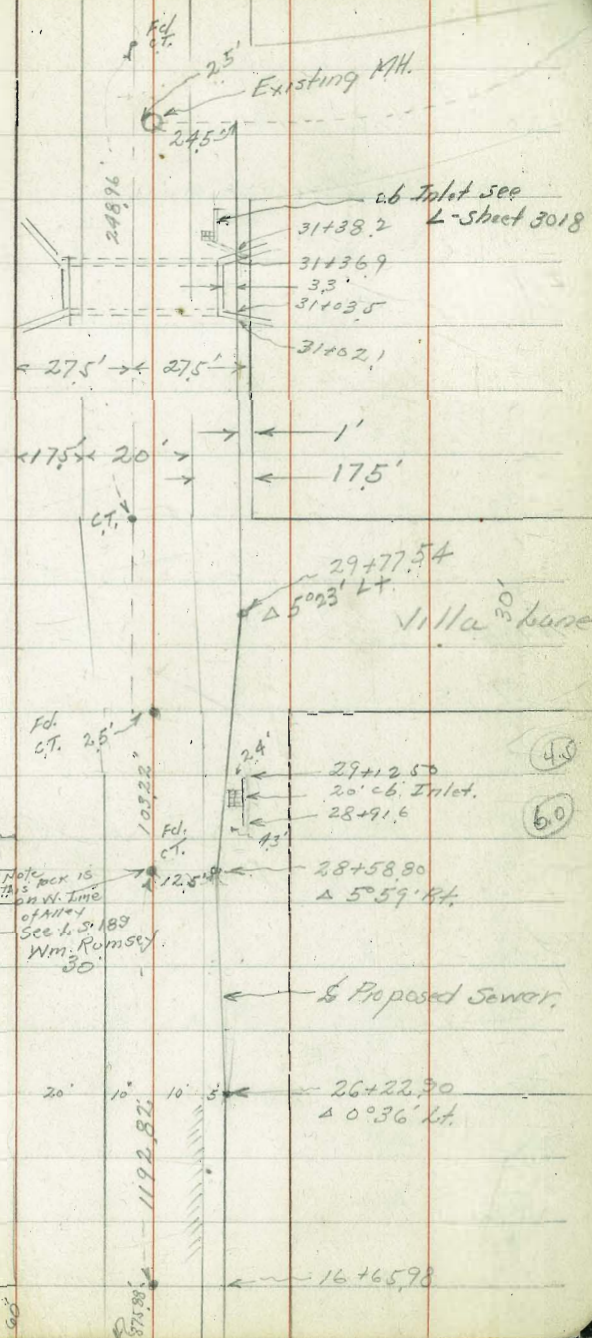 Fd.
C.T.
2.5'
Existing MH.
24.5'
248.96
cb Inlet see
L-sheet 3018
31+38.2
31+36.9
3.3'
31+03.5
31+02.1
27.5' 27.5'
1'
17.5' 20'
17.5'
C.T.
29+77.54
Δ 5°23' Lt.
Villa Lane
30'
Fd.
C.T. 2.5'
103.22'
2.4'
29+12.50
20' cb. Inlet.
28+91.6
4.3'
4.5
6.0
Fd.
C.T.
12.5'
28+58.80
Δ 5°59' Rt.
Note
This tack is
on W. Line
of Alley
See L.S. 189
Wm. Rumsey
30
₠ Proposed Sewer.
20' 10' 10' 5'
26+22.90
Δ 0°36' Lt.
1192.82'
16+65.98
60'